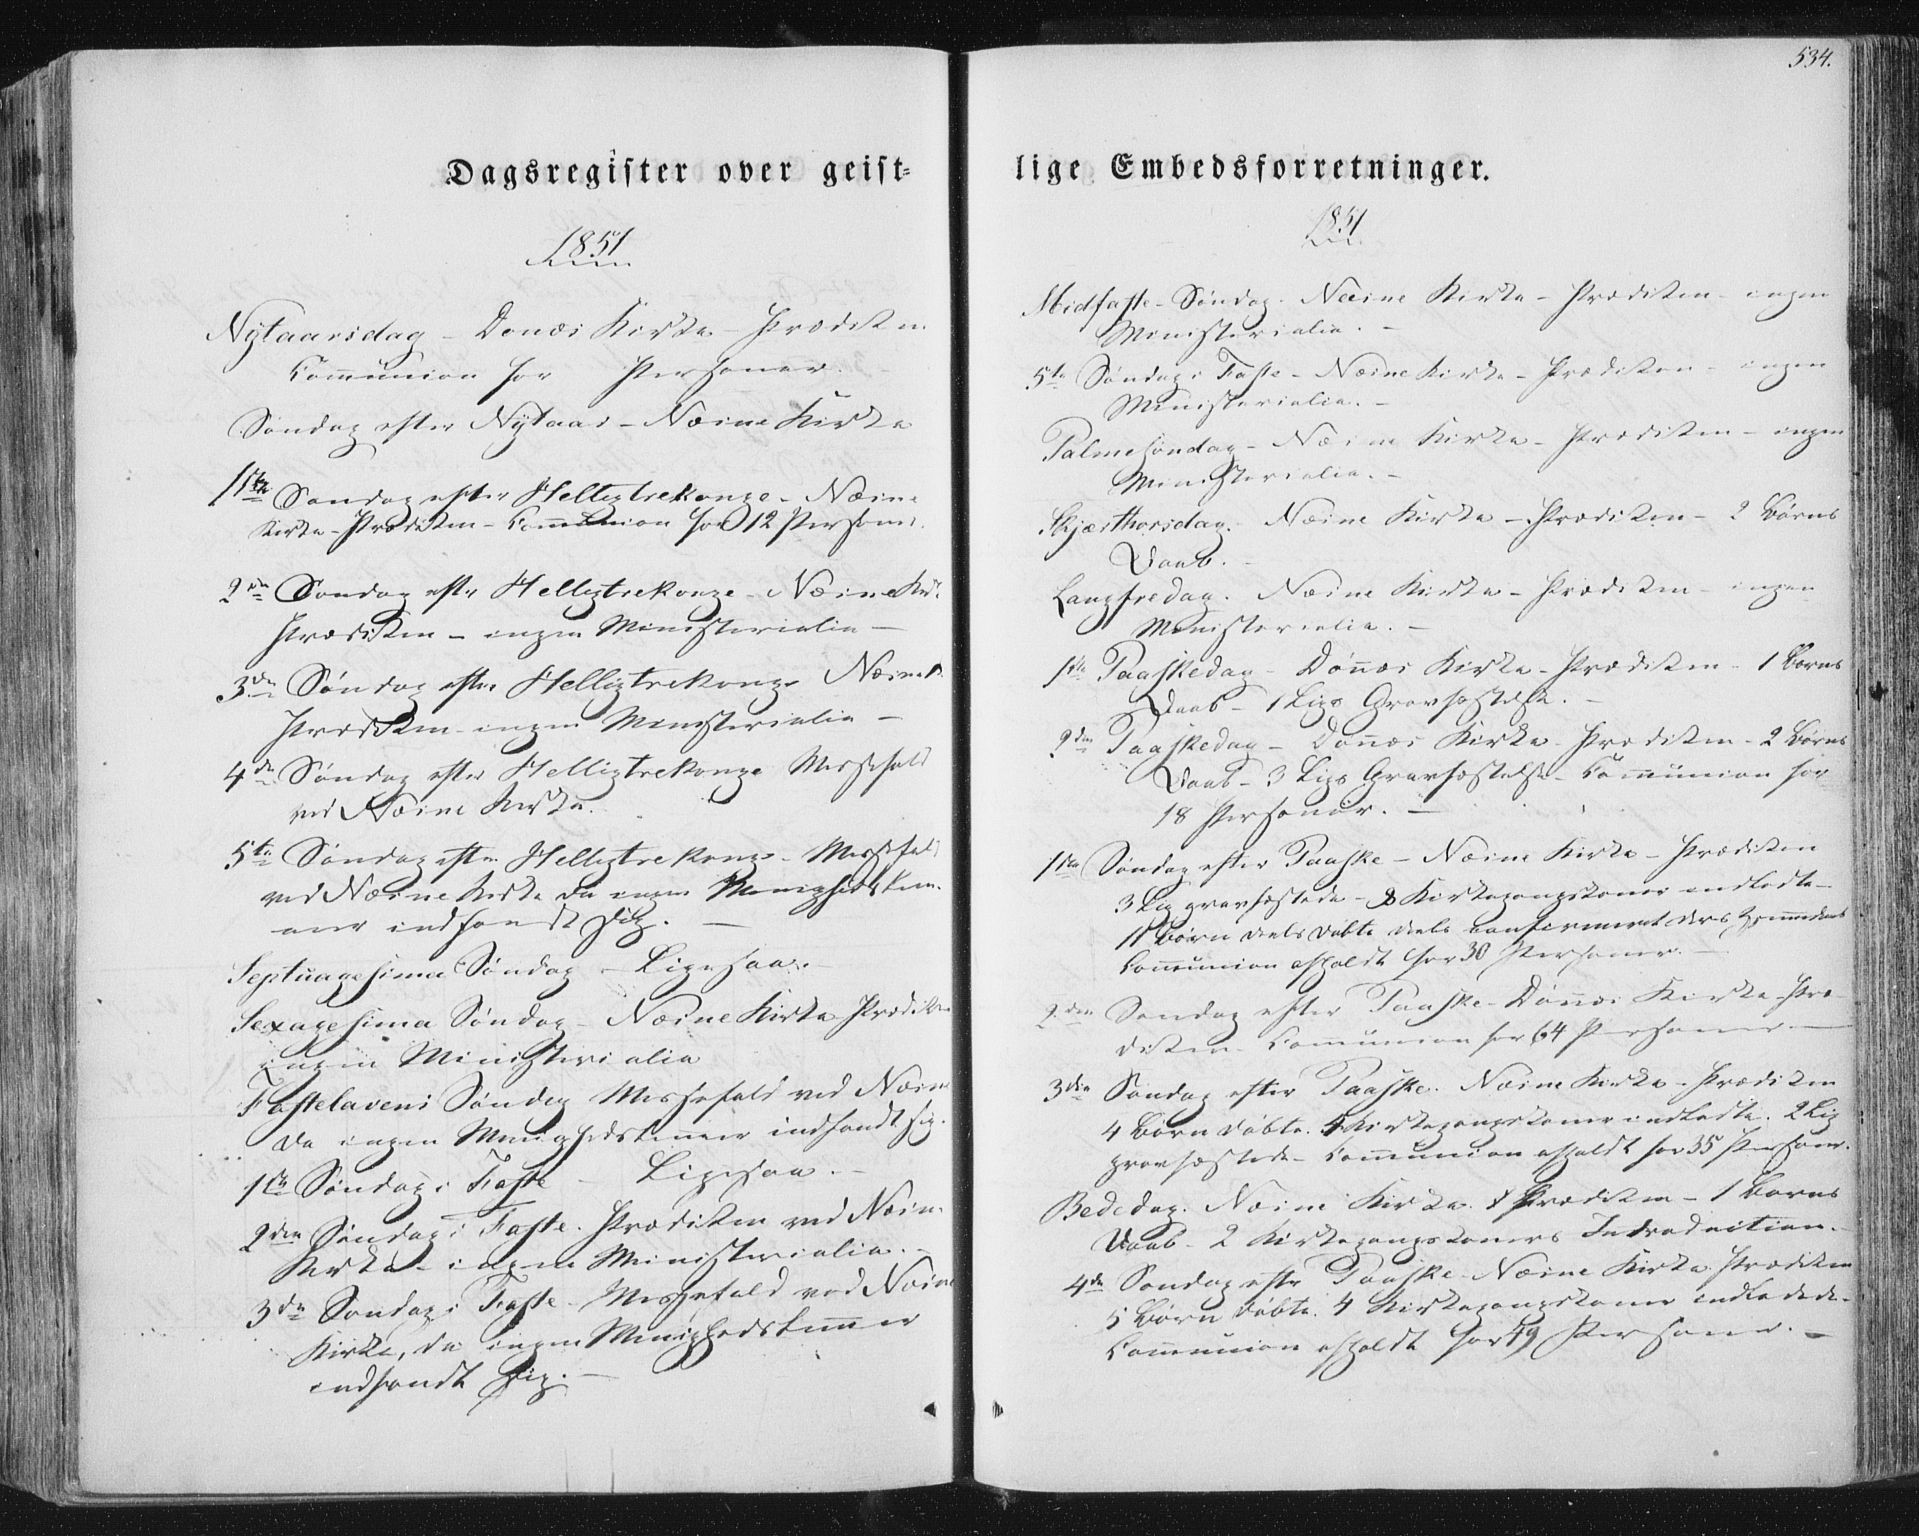 Dagsregister over geist-
1851
Nytaarsdag - Dønæs Kirke - Prædiken
Communion for Personer.
Søndag efter Nytaar - Næsne Kirke
1ste Søndag efter Helligtrekonge - Næsne
Kirke - Prædiken - Communion for 12 Personer.
2den Søndag efter Helligtrekonge - Næsne Kirke
Prædiken - ingen Ministerialia -
3die Søndag efter Helligtrekonge Næsne K.
Prædiken - ingen Ministerialia -
4de Søndag efter Helligtrekonge Messefald
ved Næsne Kirke.
5te Søndag efter Helligtrekonge - Messefald
ved Næsne Kirke da ingen Menighedslem-
mer indfandt sig. -
Septuagesima Søndag - Ligesaa. -
Sexagesima Søndag - Næsne Kirke Prædiken
ingen Ministerialia
Fastelavens Søndag Messefald ved Næsne
da ingen Menighedslemmer indfandt sig.
1ste Søndag i Faste - Ligesaa. -
2den Søndag i Faste. Prædiken ved Næsne
Kirke - ingen Ministerialia. -
3die Søndag i Faste - Messefald ved Næsne
Kirke, da ingen Menighedslemmer
indfandt sig. -
534.
lige Embedsforretninger.
1851
Midfaste - Søndag. Næsne Kirke - Prædiken - ingen
Ministerialia. -
5te Søndag i Faste - Næsne Kirke - Prædiken - ingen
Ministerialia. -
Palmesøndag - Næsne Kirke - Prædiken - ingen
Ministerialia. -
Skjærthorsdag. Næsne Kirke - Prædiken - 2 Børns
Daab. -
Langfredag. Næsne Kirke - Prædiken - ingen
Ministerialia. -
1ste Paaskedag - Dønnæs Kirke - Prædiken - 1 Barns
Daab - 1 Ligs Gravfæstelse. -
2den Paaskedag - Dønnæs Kirke - Prædiken - 2 Børns
Daab - 3 Ligs Gravfæstelse - Communion for
18 Personer. -
1ste Søndag efter Paaske - Næsne Kirke - Prædiken
3 Lig gravfæstede - 8 Kirkegangskoner indledte -
11 Børn deels døbte deels confirmeret deres Hjemmedaab
Communion afholdt for 30 Personer. -
2den Søndag efter Paaske - Dønnæs Kirke - Præ-
diken - Communion for 64 Personer -
3die Søndag efter Paaske. Næsne Kirke - Prædiken
4 Børn døbte. 4 Kirkegangskoner indledte. 2 Lig
gravfæstede - Communion afholdt for 35 Personer.
Bededag. Næsne Kirke. Prædiken - 1 Barns
Daab - 2 Kirkegangskoners Introduction. -
4de Søndag efter Paaske - Næsne Kirke Prædiken
5 Børn døbte. 4 Kirkegangskoner indledede -
Communion afholdt for 49 Personer. -